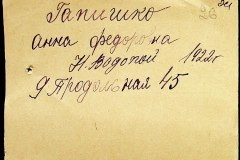 26
Гапишко
анна федоровна
Н. Водопой 1922г
9 Продольная 45